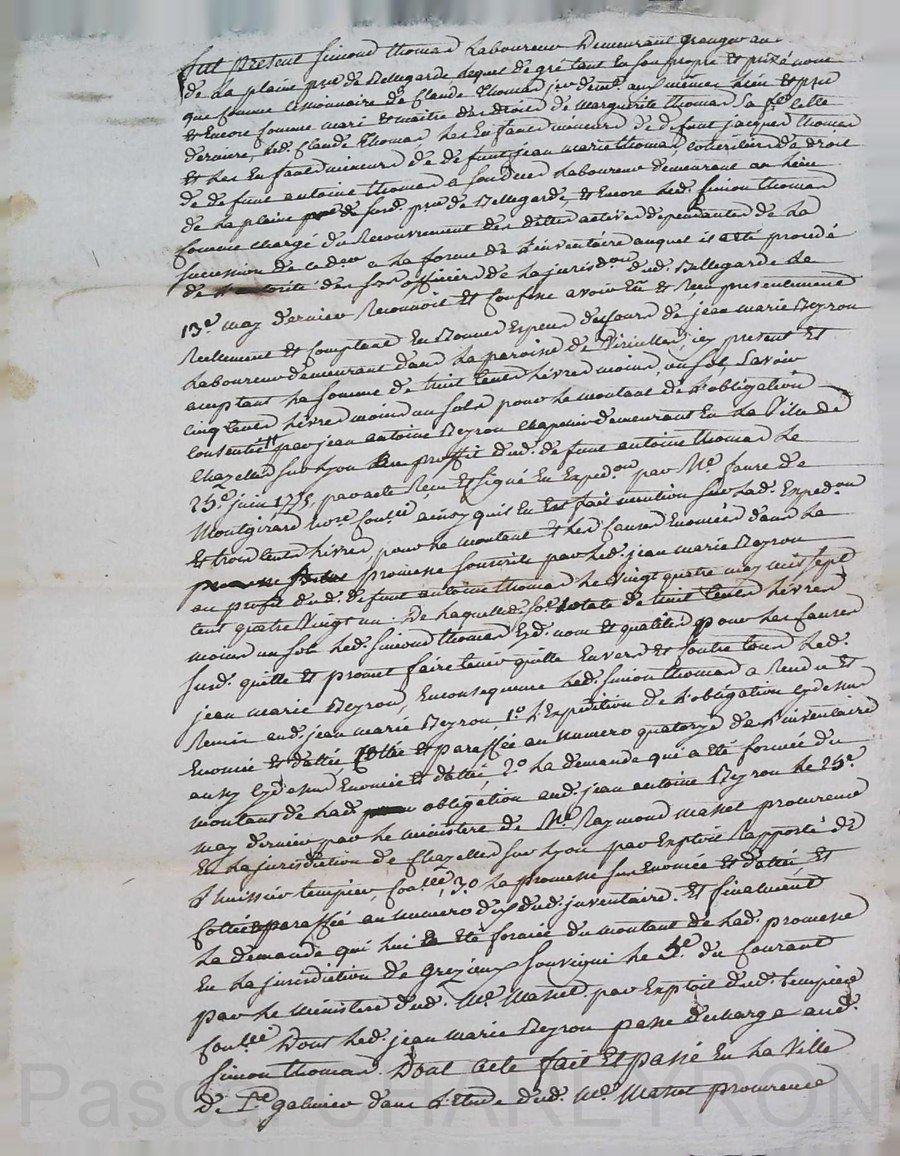 fut present Simond thomas Laboureur Demeurant granger au
de La plaine psse de Bellegarde Lequel de gré tant En son propre et privé nom
que Comme Cessionnaire de Claude Thomas demt aux mêmes Lieu et psse
et Encore Comme mari et maitre des droits de Marguerite thomas Sa fe celle
derniere, Led. Claude thomas Les Enfants mineurs de defunt jacques thomas
et Les Enfants mineurs de defunt jean marie thomas, Cohéritiers de droit
de defunt antoine thomas a Son deces Laboureur demeurant au Lieu
de La plaine susd. psse de Bellegarde, et Encore Led. Simon thomas
Comme chargé du Recouvrement des dettes actives dependantes de La
sucession de ce der a La forme de L'inventaire auquel il a été procédé
de L'autorité des srs officiers de La jurisdon dud. Bellegarde Le
13e may dernier Reconnoit et Confesse avoir Eû et Reçu presentement
Reellement et Comptant En Bonnes Especes du jour de jean marie Beyron
Laboureur demeurant dans La paroisse de Viricelles, icy present et
acceptant La somme de huit Cents Livres moins un sol, Savoir
Cinq Cents Livres moins un sols pour Le montant de L'obligation
Consentie par jean antoine Beyron chapuis demeurant En La Ville de
Chazelles sur Lyon au proffit dud. defunt antoine thomas Le
25e juin 1775, par acte Reçu Et signé En Expedon par Me faure de
Montgirard nore Coallé ainsy qu'il En Est fait mention sur Lad. Expedon
Et trois Cents Livres pour Le montant et Les Causes Enoncées dans La
promesse souscrite par Led. jean marie Beyron
au profit dud. defunt antoine thomas Le Vingt quatre may mil sept
Cent quatre Vingt un: De Laquelle d. Se totale de huit Cents Livres
moins un sols Led. Simond thomas Esd. nom et qualités pour Les Causes
susd. quitte et promet faire tenir quitte Envers et Contre tous Led.
jean marie Beyron, En Consequence Led. Simon thomas a Rendu et
Remis aud. jean marie Beyron 1o. L'Expédition de L'obligation cy dessus
Enoncée et dattée Cottée et paraffée au numero quatorze de L'inventaire
aussy cy dessus Enoncé et datté, 2o. La demande qui a été formée du
montant de Lad. obligation aud. jean antoine Beyron Le 25e.
may dernier par Le ministere de Me Raymond Massel procureur
En La jurisdiction de Chazelles sur Lyon par Exploit Rapporté de
L'huissier tempier, Coallé 3o. La promesse sus Enoncée et dattée et
Cottée paraffée au numero dix dud. inventaire. Et finalement
La demande qui Lui a Eté formée du montant de Lad. promesse
En La jurisdiction de Grezieux Souvigni Le 5e. du Courant
par Le ministere dud. Me Massel. par Exploit dud. tempier
Coallé Dont Led. jean marie Beyron passe décharge aud.
Simon thomas. Dont acte fait Et passé En La Ville
de St galmier dans L'étude dud. Me Massel procureur
Pascal CHARETRON